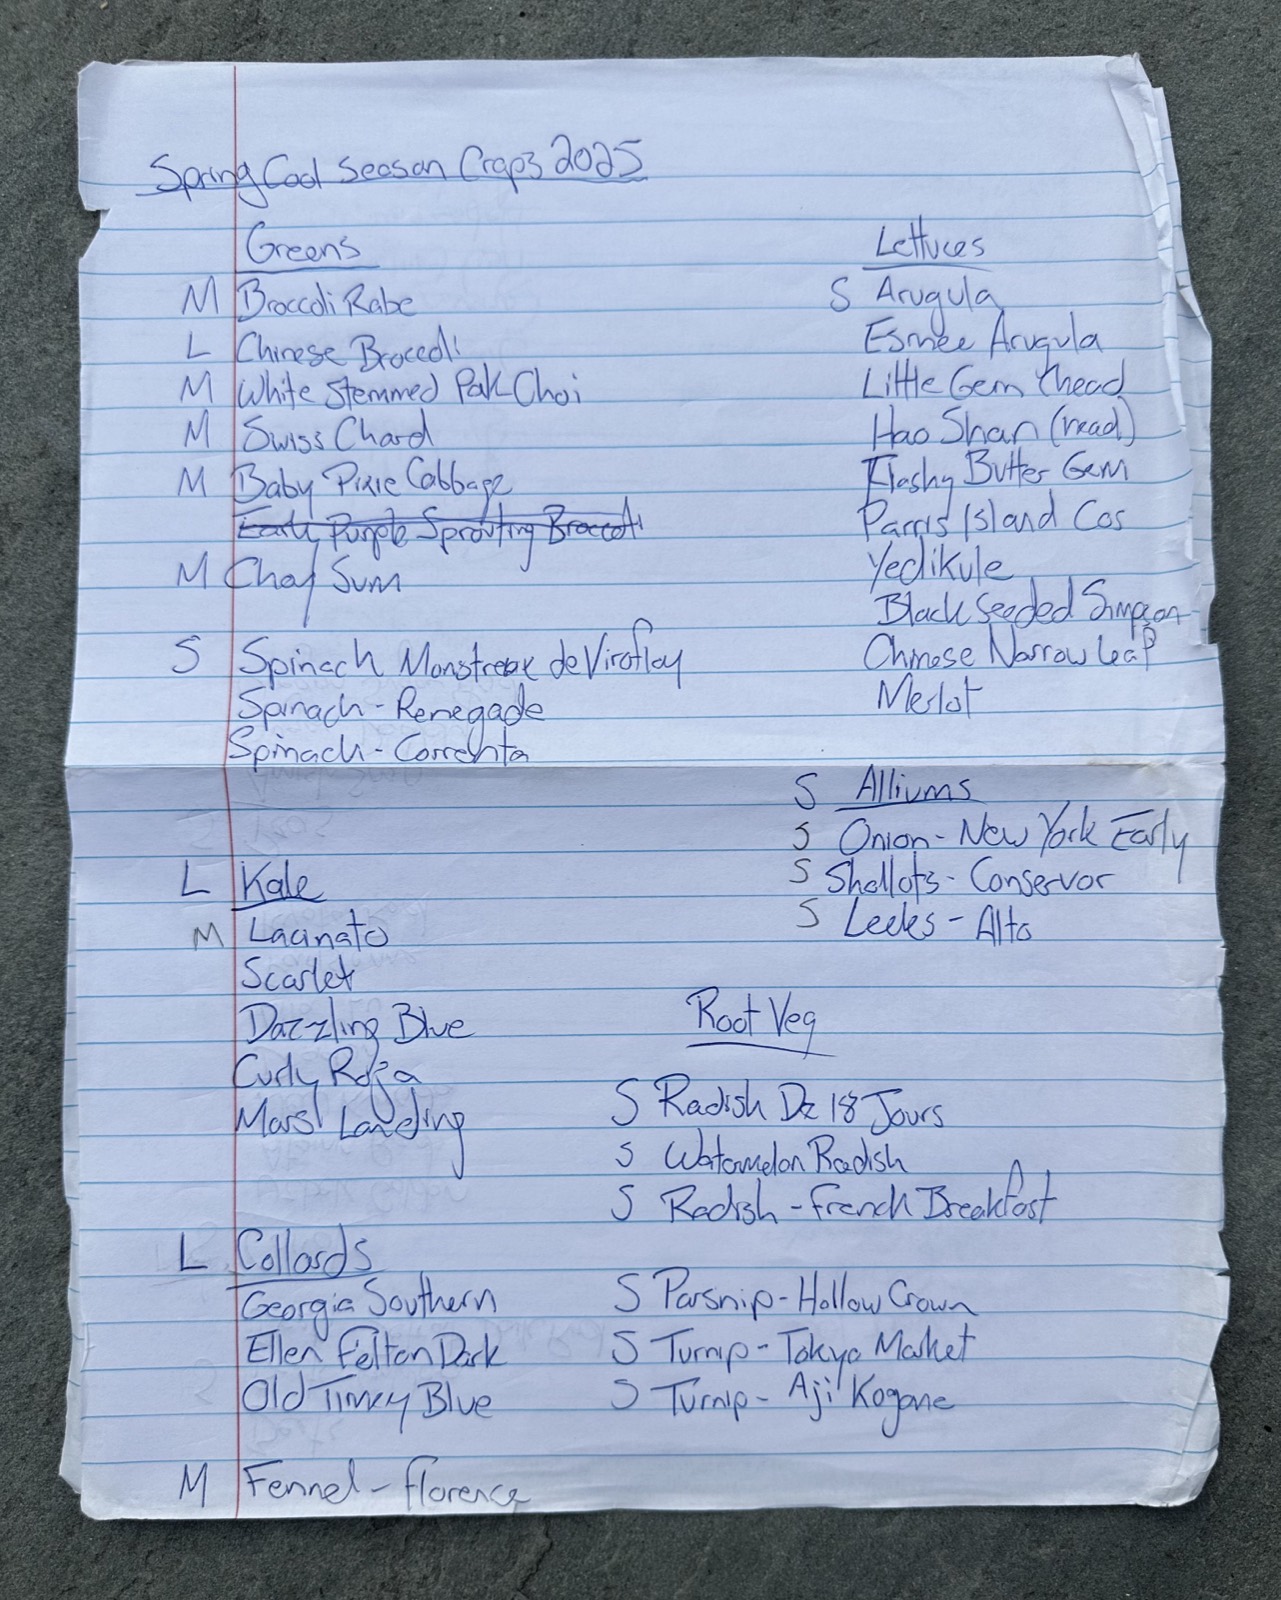 Spring Cool Season Crops 2025
Greens
M Broccoli Rabe
L Chinese Broccoli
M White Stemmed Pak Choi
M Swiss Chard
M Baby Pixie Cabbage
Early Purple Sprouting Broccoli
M Choy Sum
S Spinach Monstreux de Viroflay
Spinach - Renegade
Spinach - Correnta
L Kale
M Lacinato
Scarlet
Dazzling Blue
Curly Roja
Mars Landing
L Collards
Georgia Southern
Ellen Felton Dark
Old Timey Blue
M Fennel - Florence
Lettuces
S Arugula
Esmee Arugula
Little Gem (head
Hao Shan (head)
Flashy Butter Gem
Parris Island Cos
Yedikule
Black Seeded Simpson
Chinese Narrow Leaf
Merlot
S Alliums
S Onion - New York Early
S Shallots - Conservor
S Leeks - Alto
Root Veg
S Radish De 18 Jours
S Watermelon Radish
S Radish - French Breakfast
S Parsnip - Hollow Crown
S Turnip - Tokyo Market
S Turnip - Aji Kogane